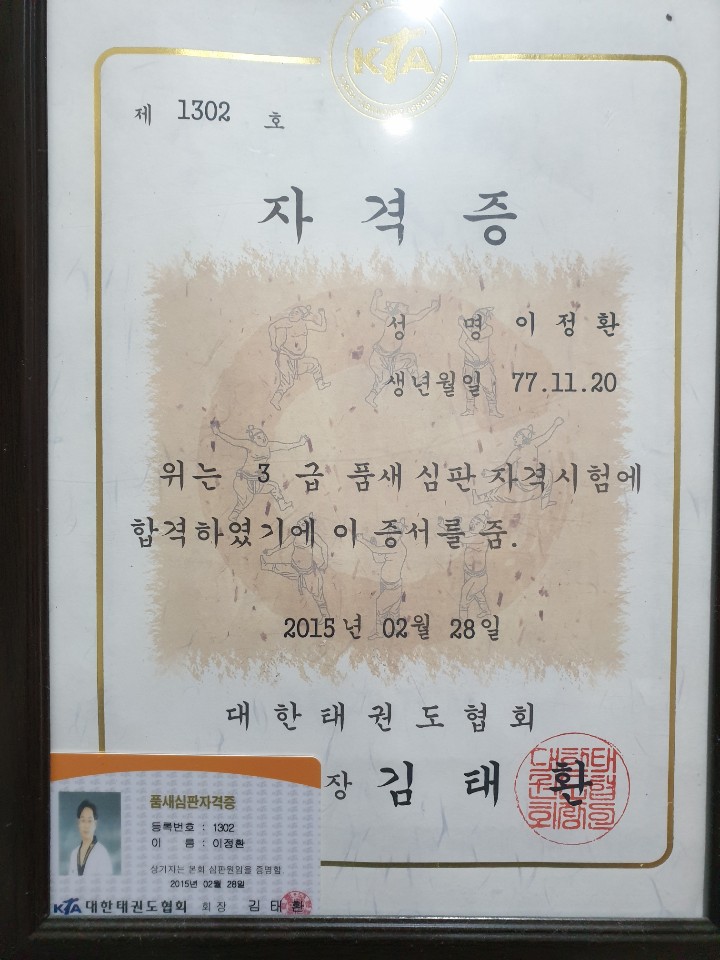 KTA
제 1302 호
자격증
성 명 이정환
생년월일 77.11.20
위는 3 급 품새 심판 자격시험에
합격하였기에 이 증서를 줌.
2015년 02월 28일
대한태권도협회
장 김태환
품새심판자격증
등록번호 : 1302
이 름 : 이정환
상기자는 본회 심판원임을 증명함
2015년 02월 28일
KTA 대한태권도협회 회장 김태환